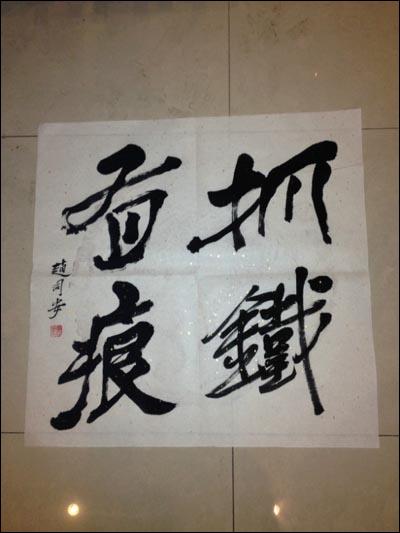 抓鐵
有痕
趙同安